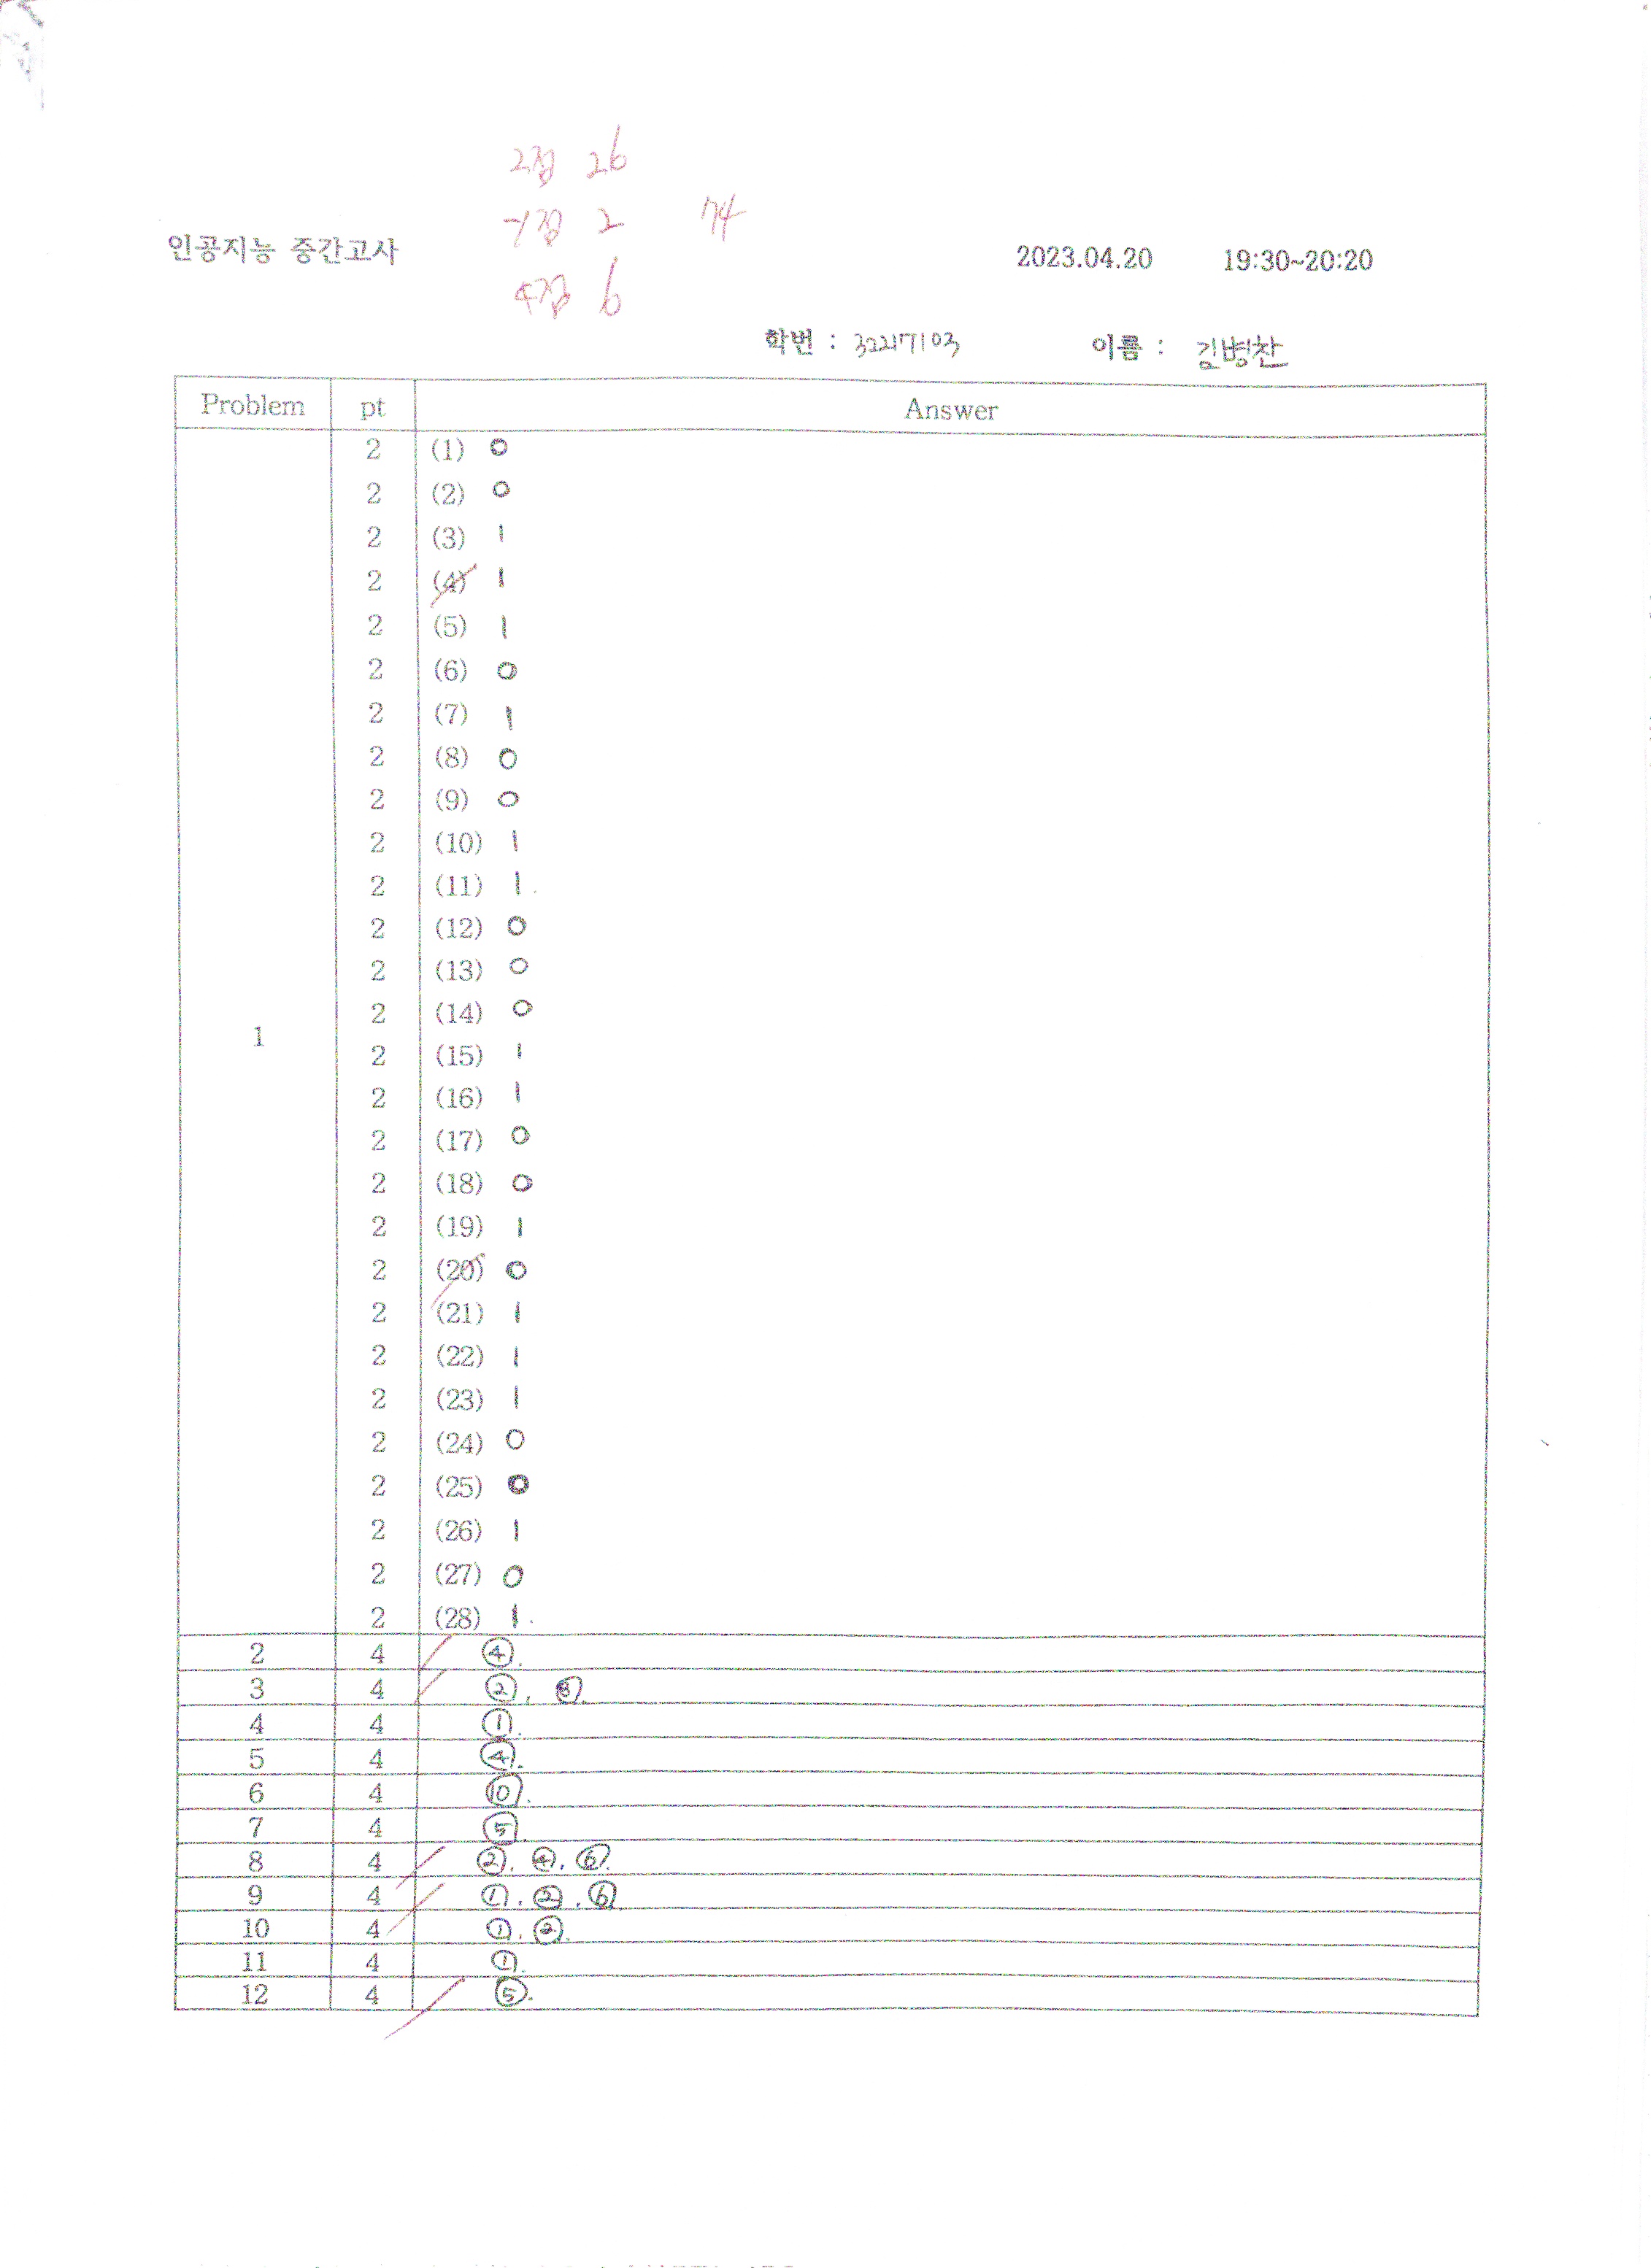 2점 26
-1점 2 74
인공지능 중간고사 2023.04.20 19:30~20:20
4점 6
학번 : 32217103 이름 : 김병찬
Problem pt Answer
2 (1) 0
2 (2) 0
2 (3) 1
2 (4) 1
2 (5) 1
2 (6) 0
2 (7) 1
2 (8) 0
2 (9) 0
2 (10) 1
2 (11) 1.
2 (12) 0
2 (13) 0
2 (14) 0
1
2 (15) 1
2 (16) 1
2 (17) 0
2 (18) 0
2 (19) 1
2 (20) 0
2 (21) 1
2 (22) 1
2 (23) 1
2 (24) 0
2 (25) 0
2 (26) 1
2 (27) 0
2 (28) 1.
2 4 ④.
3 4 ②, ⑧.
4 4 ①.
5 4 ④.
6 4 ⑩.
7 4 ⑤.
8 4 ②, ④, ⑥.
9 4 ①, ②, ⑥.
10 4 ①, ②.
11 4 ①.
12 4 ⑤.